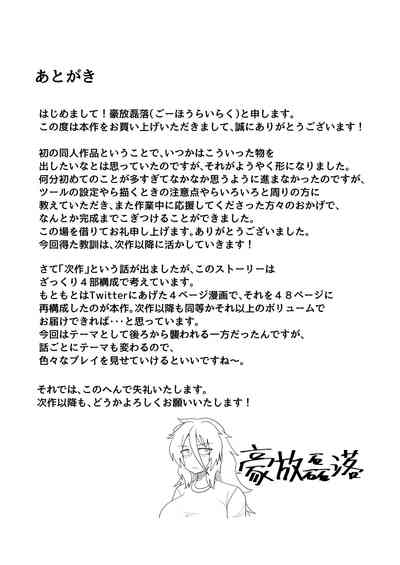 あとがき
はじめまして！豪放磊落（ごーほうらいらく）と申します。
この度は本作をお買い上げいただきまして、誠にありがとうございます！
初の同人作品ということで、いつかはこういった物を
出したいなとは思っていたのですが、それがようやく形になりました。
何分初めてのことが多すぎてなかなか思うように進まなかったのですが、
ツールの設定やら描くときの注意点やらいろいろと周りの方に
教えていただき、また作業中に応援してくださった方々のおかげで、
なんとか完成までこぎつけることができました。
この場を借りてお礼申し上げます。ありがとうございました。
今回得た教訓は、次作以降に活かしていきます！
さて「次作」という話が出ましたが、このストーリーは
ざっくり４部構成で考えています。
もともとはTwitterにあげた４ページ漫画で、それを４８ページに
再構成したのが本作。次作以降も同等かそれ以上のボリュームで
お届けできれば・・・と思っています。
今回はテーマとして後ろから襲われる一方だったんですが、
話ごとにテーマも変わるので、
色々なプレイを見せていけるといいですね～。
それでは、このへんで失礼いたします。
次作以降も、どうかよろしくお願いいたします！
豪放磊落